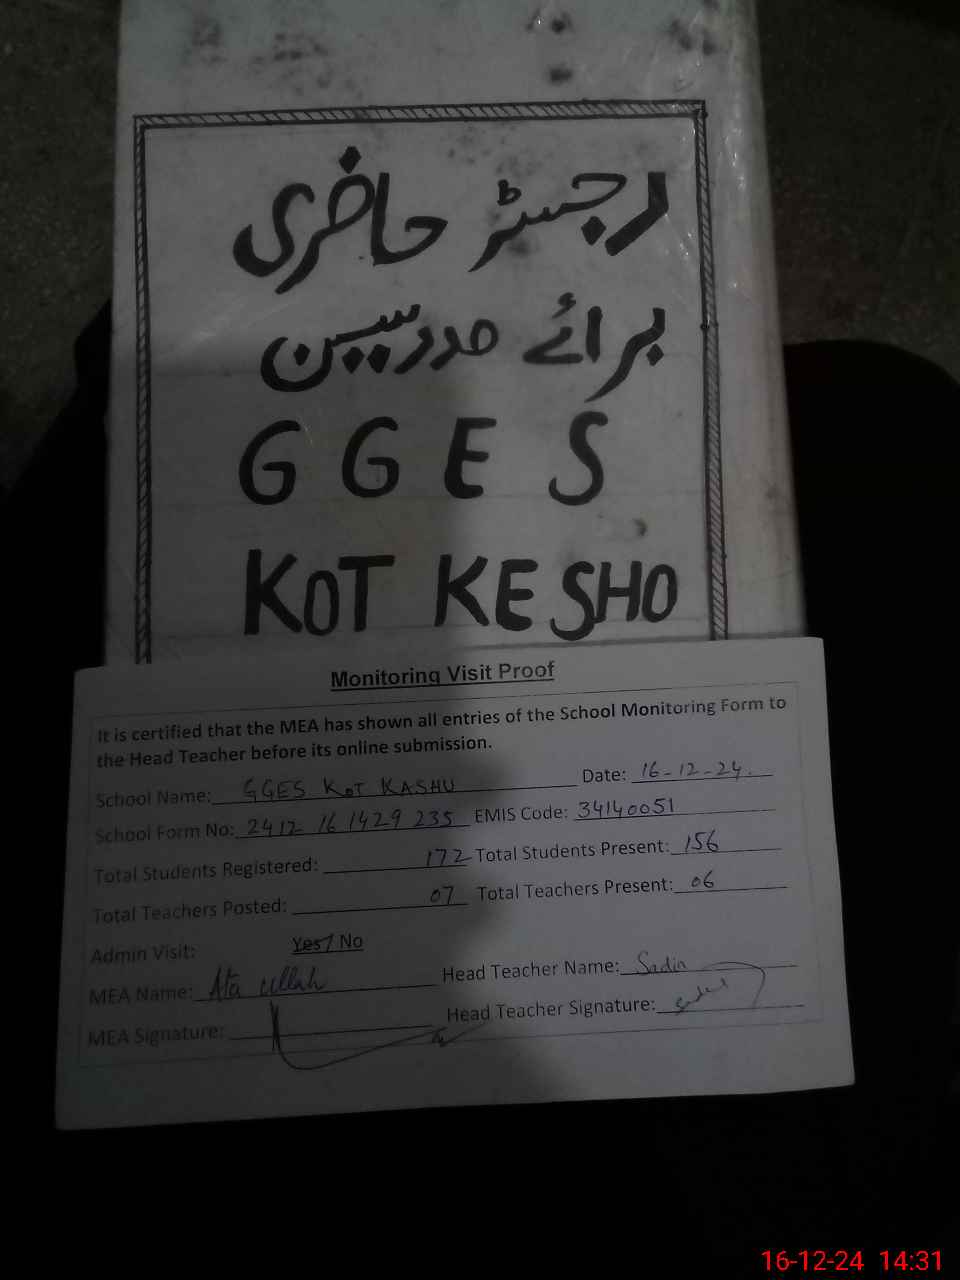 رجسٹر حاضری
برائے مدرسین
G G E S
KOT KESHO
Monitoring Visit Proof
It is certified that the MEA has shown all entries of the School Monitoring Form to
the Head Teacher before its online submission.
School Name: GGES KOT KASHU Date: 16-12-24.
School Form No: 2412 16 1429 235 EMIS Code: 34140051
Total Students Registered: 172 Total Students Present: 156
Total Teachers Posted: 07 Total Teachers Present: 06
Admin Visit: Yes/ No
MEA Name: Ata ullah Head Teacher Name:
MEA Signature: Head Teacher Signature:
16-12-24 14:31